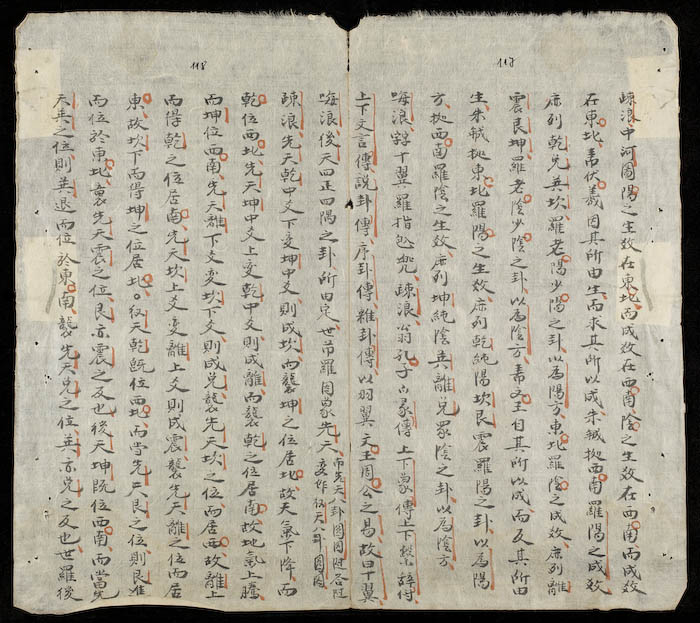 117
疎浪中河圖陽之生数在東北而成数在西南陰之生数在西南而成数
在東北希伏義因其所由生而求其所以成朱 西南羅陽之成数
列乾兌巽坎羅老陽少陽之卦以為陽方東北羅陰之成数 列離
震艮坤羅老陰少陰之卦以為陰方希文王自其所以成而反其所由
生朱 東北羅陽之生数 列乾純陽坎艮震羅陽之卦以為陽
方 西南羅陰之生数 列坤純陰巽離兌羅陰之卦以為陰方
嗨浪 十翼羅指 疎浪翁孔子 彖傳上下象傳上下繫 辞傳
上下文言傳說卦傳序卦傳雜卦傳以羽翼文王周公之易故曰十翼
嗨浪後天四正四隅之卦所由定世 羅 先天
先天八卦圖圓
变作後天八卦圖圓
118
疎浪先天乾中爻下变坤中爻則成坎而襲坤之位居北故天氣下降而
乾位西北先天坤中爻上变乾中爻則成離而襲乾之位居南故地氣上騰
而坤位西南先天離下爻变坎下爻則成兌襲先天坎之位而居西故離上
而得乾之位居南先天坎上爻变離上爻則成震襲先天離之位而居
東故坎下而得坤之位居北後天乾既位西北而當先天艮之位則艮進
而位於東北襲先天震之位艮亦震之反也後天坤既位西南而當先
天巽之位則巽退而位於東南襲先天兌之位巽亦兌之反也世羅後